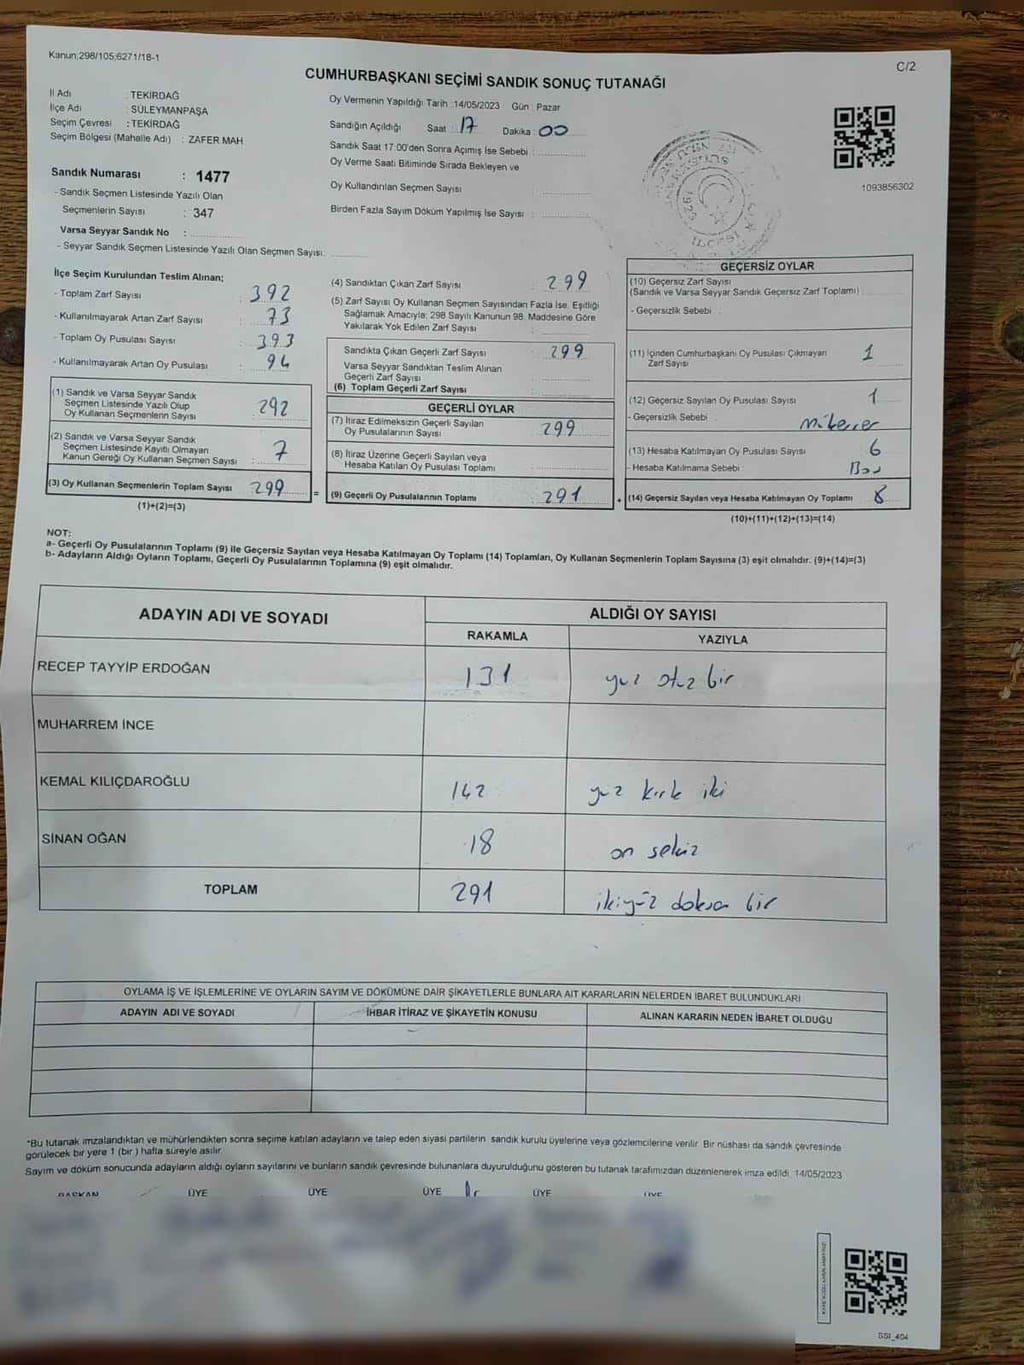 Kanun;298/105;6271/18-1
C/2
CUMHURBAŞKANI SEÇİMİ SANDIK SONUÇ TUTANAĞI
İl Adı : TEKİRDAĞ
İlçe Adı : SÜLEYMANPAŞA
Seçim Çevresi : TEKİRDAĞ
Seçim Bölgesi (Mahalle Adı) : ZAFER MAH
Sandık Numarası : 1477
- Sandık Seçmen Listesinde Yazılı Olan
Seçmenlerin Sayısı : 347
Varsa Seyyar Sandık No :
- Seyyar Sandık Seçmen Listesinde Yazılı Olan Seçmen Sayısı:
Oy Vermenin Yapıldığı Tarih :14/05/2023 Gün : Pazar
Sandığın Açıldığı Saat : 17 Dakika : 00
Sandık Saat 17:00'den Sonra Açımış İse Sebebi :
Oy Verme Saati Bitiminde Sırada Bekleyen ve
Oy Kullandırılan Seçmen Sayısı
Birden Fazla Sayım Döküm Yapılmış İse Sayısı :
1093856302
İlçe Seçim Kurulundan Teslim Alınan;
- Toplam Zarf Sayısı : 392
- Kullanılmayarak Artan Zarf Sayısı : 73
- Toplam Oy Pusulası Sayısı : 393
- Kullanılmayarak Artan Oy Pusulası : 94
(1) Sandık ve Varsa Seyyar Sandık
Seçmen Listesinde Yazılı Olup
Oy Kullanan Seçmenlerin Sayısı : 292
(2) Sandık ve Varsa Seyyar Sandık
Seçmen Listesinde Kayıtlı Olmayan
Kanun Gereği Oy Kullanan Seçmen Sayısı : 7
(3) Oy Kullanan Seçmenlerin Toplam Sayısı : 299
(1)+(2)=(3)
(4) Sandıktan Çıkan Zarf Sayısı : 299
(5) Zarf Sayısı Oy Kullanan Seçmen Sayısından Fazla İse, Eşitliği
Sağlamak Amacıyla; 298 Sayılı Kanunun 98. Maddesine Göre
Yakılarak Yok Edilen Zarf Sayısı :
Sandıkta Çıkan Geçerli Zarf Sayısı : 299
Varsa Seyyar Sandıktan Teslim Alınan
Geçerli Zarf Sayısı :
(6) Toplam Geçerli Zarf Sayısı :
GEÇERLİ OYLAR
(7) İtiraz Edilmeksizin Geçerli Sayılan
Oy Pusulalarının Sayısı : 299
(8) İtiraz Üzerine Geçerli Sayılan veya
Hesaba Katılan Oy Pusulası Toplamı :
= (9) Geçerli Oy Pusulalarının Toplamı : 291 +
GEÇERSİZ OYLAR
(10) Geçersiz Zarf Sayısı
(Sandık ve Varsa Seyyar Sandık Geçersiz Zarf Toplamı) :
- Geçersizlik Sebebi :
(11) İçinden Cumhurbaşkanı Oy Pusulası Çıkmayan
Zarf Sayısı : 1
(12) Geçersiz Sayılan Oy Pusulası Sayısı : 1
- Geçersizlik Sebebi : mükerrer
(13) Hesaba Katılmayan Oy Pusulası Sayısı : 6
- Hesaba Katılmama Sebebi : Boş
(14) Geçersiz Sayılan veya Hesaba Katılmayan Oy Toplamı : 8
(10)+(11)+(12)+(13)=(14)
NOT:
a- Geçerli Oy Pusulalarının Toplamı (9) ile Geçersiz Sayılan veya Hesaba Katılmayan Oy Toplamı (14) Toplamları, Oy Kullanan Seçmenlerin Toplam Sayısına (3) eşit olmalıdır. (9)+(14)=(3)
b- Adayların Aldığı Oyların Toplamı, Geçerli Oy Pusulalarının Toplamına (9) eşit olmalıdır.
ADAYIN ADI VE SOYADI
ALDIĞI OY SAYISI
RAKAMLA YAZIYLA
RECEP TAYYİP ERDOĞAN 131 yüz otuz bir
MUHARREM İNCE
KEMAL KILIÇDAROĞLU 142 yüz kırk iki
SİNAN OĞAN 18 on sekiz
TOPLAM 291 ikiyüz doksan bir
OYLAMA İŞ VE İŞLEMLERİNE VE OYLARIN SAYIM VE DÖKÜMÜNE DAİR ŞİKAYETLERLE BUNLARA AİT KARARLARIN NELERDEN İBARET BULUNDUKLARI
ADAYIN ADI VE SOYADI İHBAR İTİRAZ VE ŞİKAYETİN KONUSU ALINAN KARARIN NEDEN İBARET OLDUĞU
*Bu tutanak imzalandıktan ve mühürlendikten sonra seçime katılan adayların ve talep eden siyasi partilerin sandık kurulu üyelerine veya gözlemcilerine verilir. Bir nüshası da sandık çevresinde
görülecek bir yere 1 (bir ) hafta süreyle asılır.
Sayım ve döküm sonucunda adayların aldığı oyların sayılarını ve bunların sandık çevresinde bulunanlara duyurulduğunu gösteren bu tutanak tarafımızdan düzenlenerek imza edildi. 14/05/2023
BAŞKAN ÜYE ÜYE ÜYE ÜYE ÜYE
SSI_404